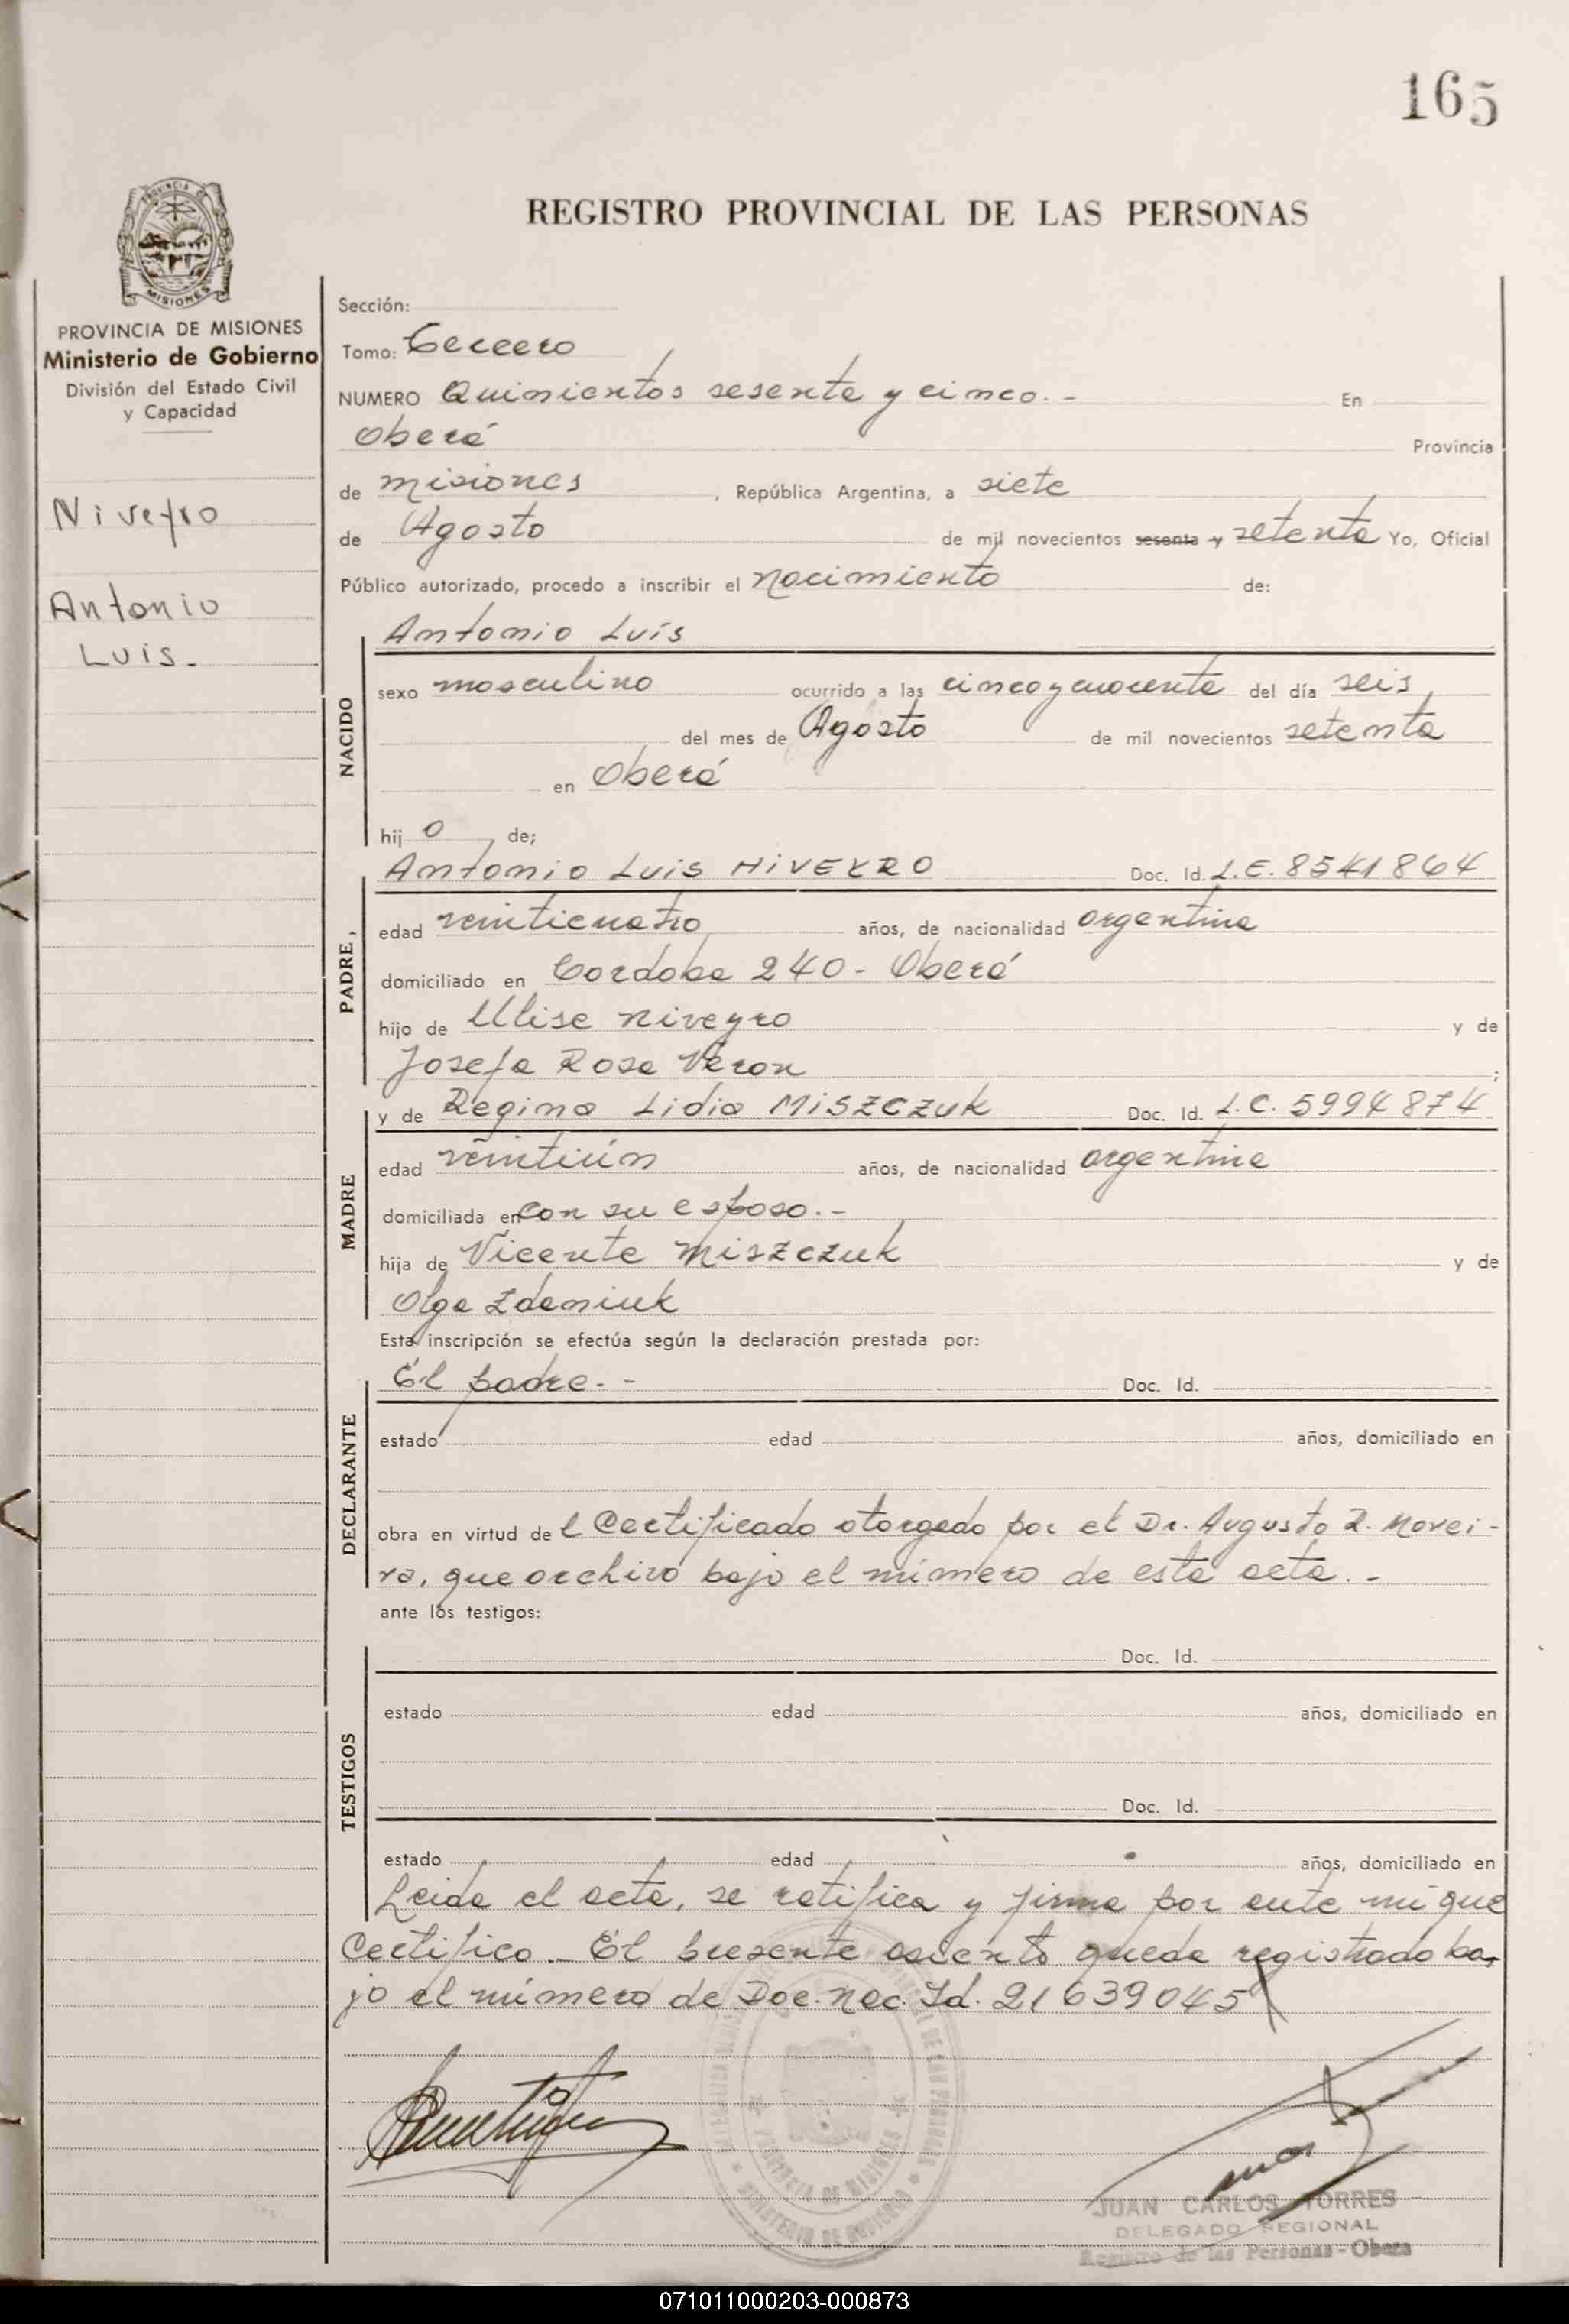 165
REGISTRO PROVINCIAL DE LAS PERSONAS
PROVINCIA DE MISIONES
Ministerio de Gobierno
División del Estado Civil
y Capacidad
Niveyro
Antonio
Luis.-
Sección:
Tomo: Tercero
NUMERO Quinientos sesenta y cinco.- En
Oberá Provincia
de misiones, República Argentina, a siete
de Agosto de mil novecientos sesenta y setenta Yo, Oficial
Público autorizado, procedo a inscribir el nacimiento de:
Antonio Luis
NACIDO
sexo masculino ocurrido a las cinco y cuarenta del día seis
del mes de Agosto de mil novecientos setenta
en Oberá
hij o de;
Antonio Luis NIVEYRO Doc. Id. L.E. 8541864
PADRE,
edad veinticuatro años, de nacionalidad argentina
domiciliado en Cordoba 240 - Oberá
hijo de Ulise niveyro y de
Josefa Rosa Veron ;
y de Regina Lidia MISZCZUK Doc. Id. L.C. 5994874
MADRE
edad veintiún años, de nacionalidad argentina
domiciliada en con su esposo.-
hija de Vicente Miszczuk y de
Olga Zdaniuk
Esta inscripción se efectúa según la declaración prestada por:
El padre.- Doc. Id.
DECLARANTE
estado edad años, domiciliado en
obra en virtud de l Certificado otorgado por el Dr. Augusto R. Morei-
ra, que archivo bajo el número de esta acta.-
ante los testigos:
Doc. Id.
TESTIGOS
estado edad años, domiciliado en
Doc. Id.
estado edad años, domiciliado en
Leida el acta, se ratifica y firma por ante mi que
Certifico.- El presente asiento queda registrado ba-
jo el número de Doc. Nac. Id. 21639045
PROVINCIA DE MISIONES
MINISTERIO DE GOBIERNO
JUAN CARLOS TORRES
DELEGADO REGIONAL
Registro de las Personas - Obera
071011000203-000873